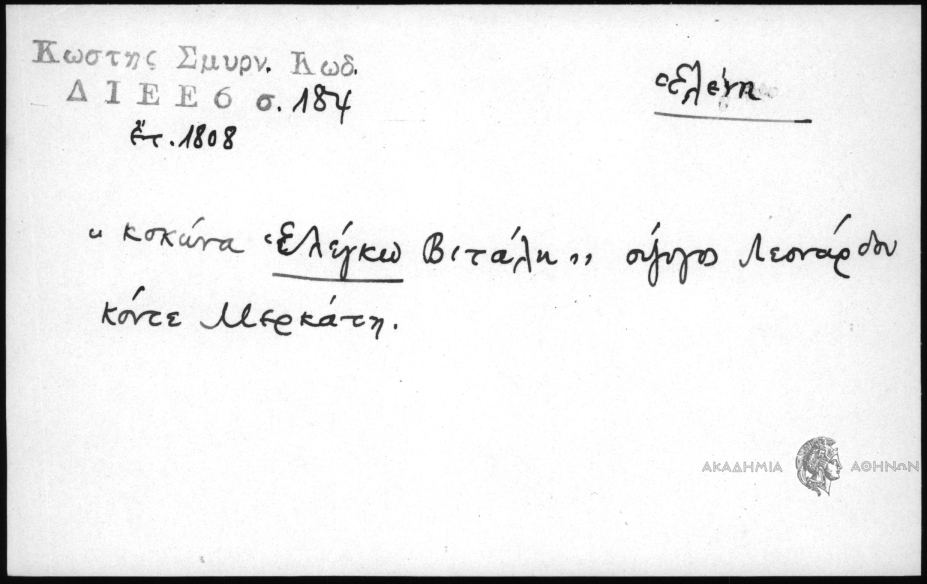 Κωστης Σμυρν. Κωδ.
ΔΙΕΕ6 σ. 184
ἔτ. 1808
Ἑλένη
" κοκώνα Ἑλέγκω Βιτάλη " σύζυγος Λεονάρδου
κόντε Μερκάτη.
ΑΚΑΔΗΜΙΑ ΑΘΗΝΩΝ